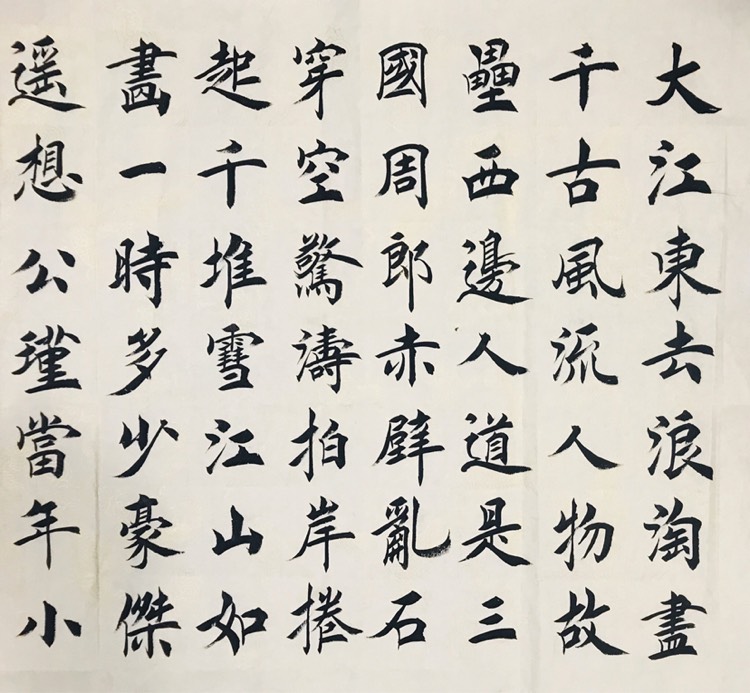 大江東去浪淘盡
千古風流人物故
壘西邊人道是三
國周郎赤壁亂石
穿空驚濤拍岸捲
起千堆雪江山如
畫一時多少豪傑
遥想公瑾當年小